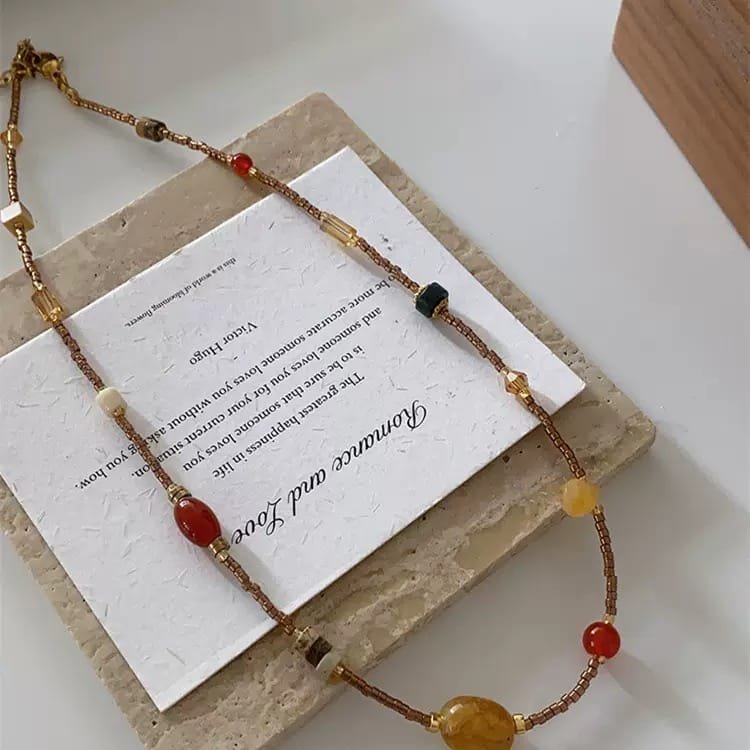 Romance and Love
The greatest happiness in life
is to be sure that someone loves you
and someone loves you for your current situation.
to be more accurate someone loves you without asking you how.
Victor Hugo
this is a world of blooming flowers.